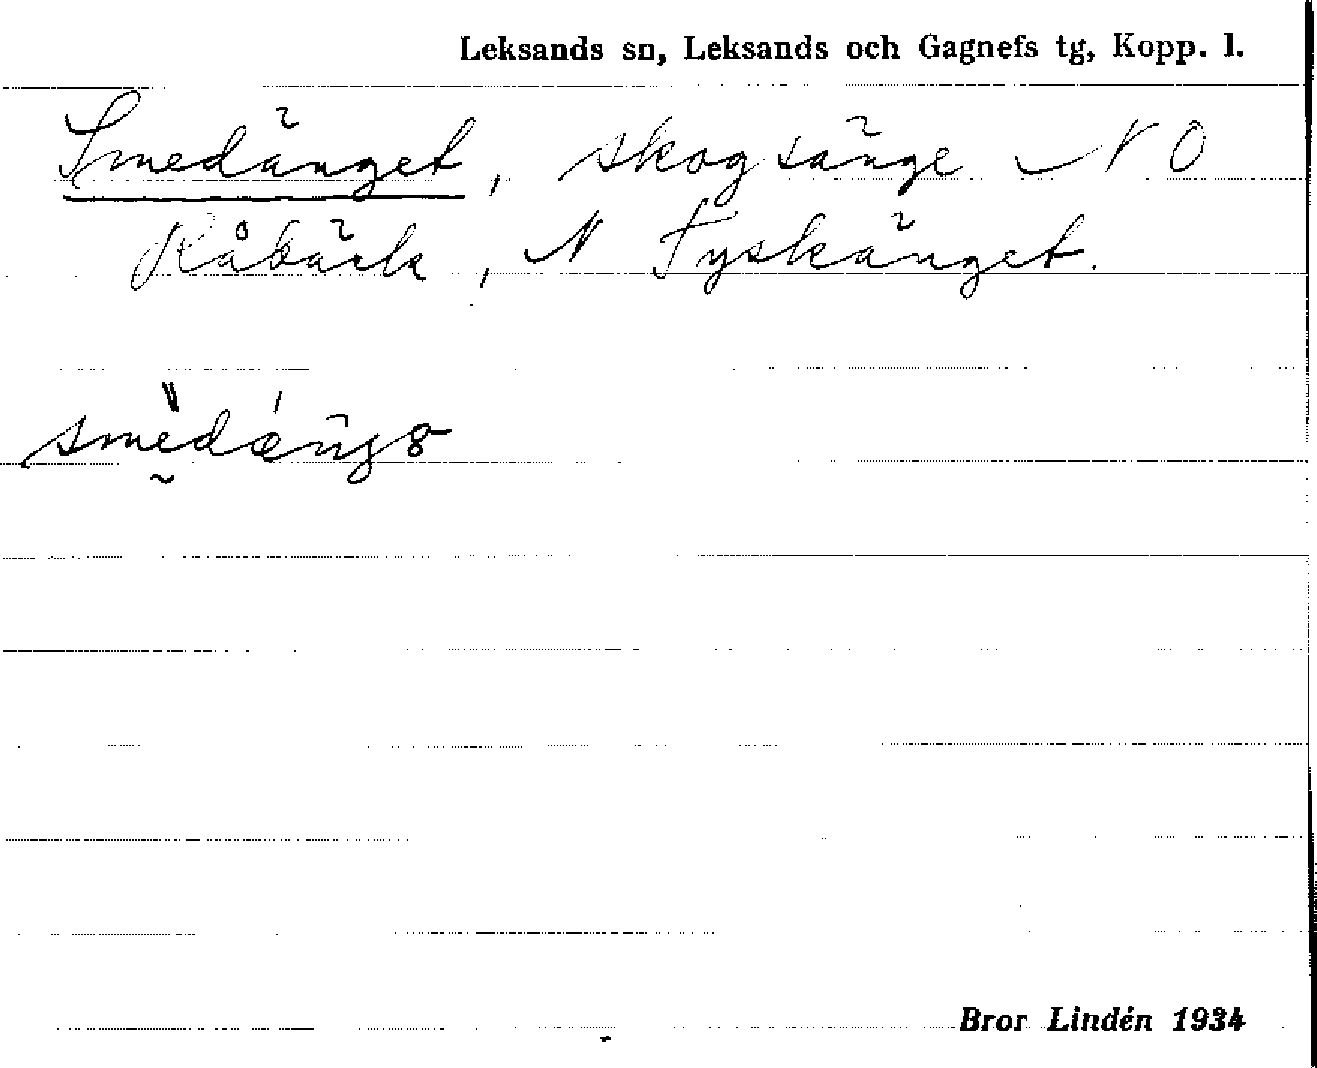 Leksands sn, Leksands och Gagnefs tg, Kopp. l.
Smedänget, skogsänge NO
Råbäck, N Tyskänget.
Bror Lindén 1934